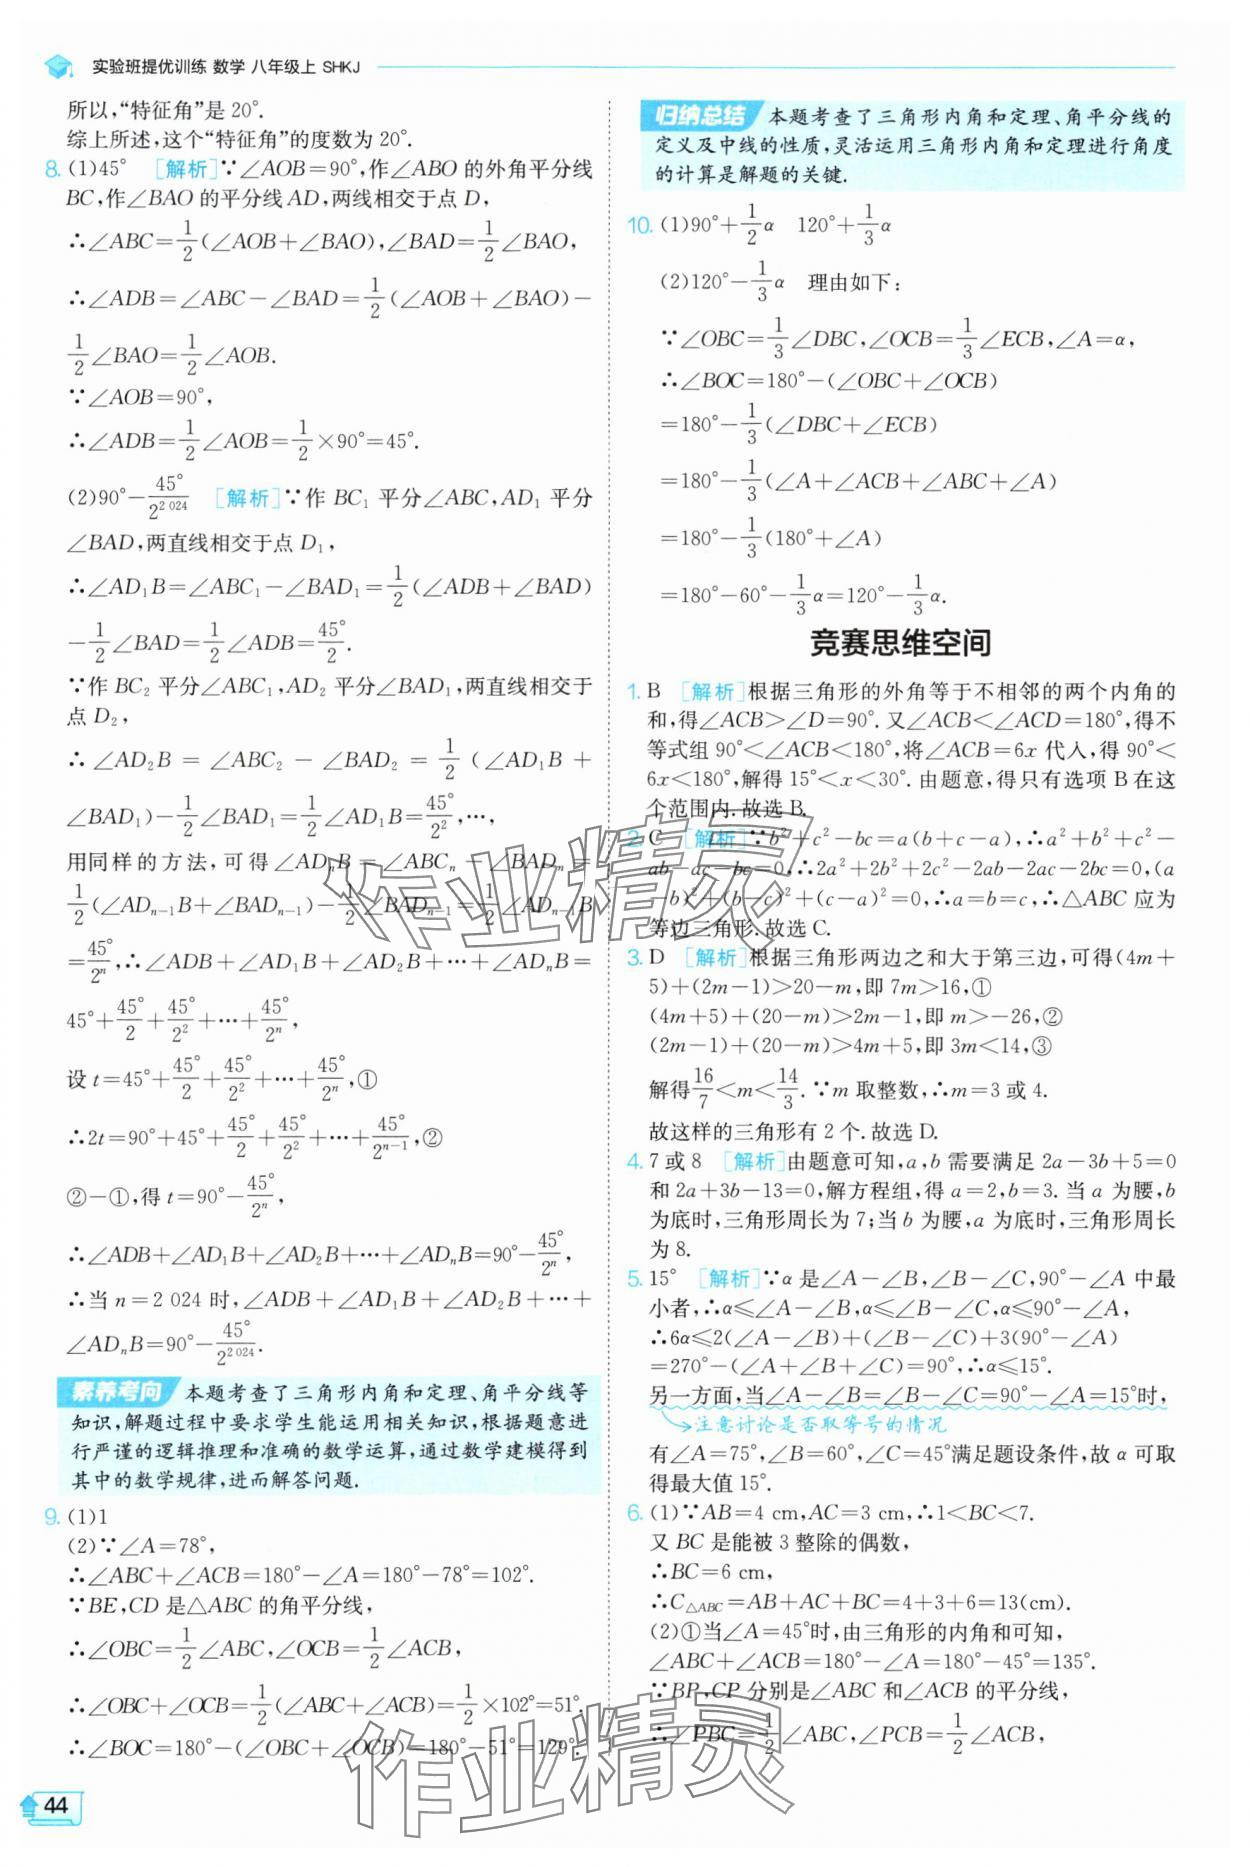 实验班提优训练 数学 八年级上 SHKJ
所以,“特征角”是 20°.
综上所述,这个“特征角”的度数为 20°.
8. (1)45° [解析]∵∠AOB=90°,作∠ABO 的外角平分线
BC,作∠BAO 的平分线 AD,两线相交于点 D,
∴∠ABC=1/2(∠AOB+∠BAO),∠BAD=1/2∠BAO,
∴∠ADB=∠ABC-∠BAD=1/2(∠AOB+∠BAO)-
1/2∠BAO=1/2∠AOB.
∵∠AOB=90°,
∴∠ADB=1/2∠AOB=1/2×90°=45°.
(2)90°-45°/2^2 024 [解析]∵作 BC₁ 平分∠ABC,AD₁ 平分
∠BAD,两直线相交于点 D₁,
∴∠AD₁B=∠ABC₁-∠BAD₁=1/2(∠ADB+∠BAD)
-1/2∠BAD=1/2∠ADB=45°/2.
∵作 BC₂ 平分∠ABC₁,AD₂ 平分∠BAD₁,两直线相交于
点 D₂,
∴∠AD₂B=∠ABC₂-∠BAD₂=1/2(∠AD₁B+
∠BAD₁)-1/2∠BAD₁=1/2∠AD₁B=45°/2²,…,
用同样的方法,可得∠ADₙB=∠ABCₙ-∠BADₙ=
1/2(∠ADₙ₋₁B+∠BADₙ₋₁)-1/2∠BADₙ₋₁=1/2∠ADₙ₋₁B
=45°/2ⁿ,∴∠ADB+∠AD₁B+∠AD₂B+…+∠ADₙB=
45°+45°/2+45°/2²+…+45°/2ⁿ,
设 t=45°+45°/2+45°/2²+…+45°/2ⁿ,①
∴2t=90°+45°+45°/2+45°/2²+…+45°/2ⁿ⁻¹,②
②-①,得 t=90°-45°/2ⁿ,
∴∠ADB+∠AD₁B+∠AD₂B+…+∠ADₙB=90°-45°/2ⁿ,
∴当 n=2 024 时,∠ADB+∠AD₁B+∠AD₂B+…+
∠ADₙB=90°-45°/2^2 024.
素养考向 本题考查了三角形内角和定理、角平分线等
知识,解题过程中要求学生能运用相关知识,根据题意进
行严谨的逻辑推理和准确的数学运算,通过数学建模得到
其中的数学规律,进而解答问题.
9. (1)1
(2)∵∠A=78°,
∴∠ABC+∠ACB=180°-∠A=180°-78°=102°.
∵BE,CD 是△ABC 的角平分线,
∴∠OBC=1/2∠ABC,∠OCB=1/2∠ACB,
∴∠OBC+∠OCB=1/2(∠ABC+∠ACB)=1/2×102°=51°.
∴∠BOC=180°-(∠OBC+∠OCB)=180°-51°=129°.
44
归纳总结 本题考查了三角形内角和定理、角平分线的
定义及中线的性质,灵活运用三角形内角和定理进行角度
的计算是解题的关键.
10. (1)90°+1/2α 120°+1/3α
(2)120°-1/3α 理由如下:
∵∠OBC=1/3∠DBC,∠OCB=1/3∠ECB,∠A=α,
∴∠BOC=180°-(∠OBC+∠OCB)
=180°-1/3(∠DBC+∠ECB)
=180°-1/3(∠A+∠ACB+∠ABC+∠A)
=180°-1/3(180°+∠A)
=180°-60°-1/3α=120°-1/3α.
竞赛思维空间
1. B [解析]根据三角形的外角等于不相邻的两个内角的
和,得∠ACB>∠D=90°.又∠ACB<∠ACD=180°,得不
等式组 90°<∠ACB<180°,将∠ACB=6x 代入,得 90°<
6x<180°,解得 15°<x<30°.由题意,得只有选项 B 在这
个范围内.故选 B.
2. C [解析]∵b²+c²-bc=a(b+c-a),∴a²+b²+c²-
ab-ac-bc=0,∴2a²+2b²+2c²-2ab-2ac-2bc=0,(a
-b)²+(b-c)²+(c-a)²=0,∴a=b=c,∴△ABC 应为
等边三角形.故选 C.
3. D [解析]根据三角形两边之和大于第三边,可得(4m+
5)+(2m-1)>20-m,即 7m>16,①
(4m+5)+(20-m)>2m-1,即 m>-26,②
(2m-1)+(20-m)>4m+5,即 3m<14,③
解得16/7<m<14/3.∵m 取整数,∴m=3 或 4.
故这样的三角形有 2 个.故选 D.
4. 7 或 8 [解析]由题意可知,a,b 需要满足 2a-3b+5=0
和 2a+3b-13=0,解方程组,得 a=2,b=3.当 a 为腰,b
为底时,三角形周长为 7;当 b 为腰,a 为底时,三角形周长
为 8.
5. 15° [解析]∵α 是∠A-∠B,∠B-∠C,90°-∠A 中最
小者,∴α≤∠A-∠B,α≤∠B-∠C,α≤90°-∠A,
∴6α≤2(∠A-∠B)+(∠B-∠C)+3(90°-∠A)
=270°-(∠A+∠B+∠C)=90°,∴α≤15°.
另一方面,当∠A-∠B=∠B-∠C=90°-∠A=15°时,
注意讨论是否取等号的情况
有∠A=75°,∠B=60°,∠C=45°满足题设条件,故 α 可取
得最大值 15°.
6. (1)∵AB=4 cm,AC=3 cm,∴1<BC<7.
又 BC 是能被 3 整除的偶数,
∴BC=6 cm,
∴C△ABC=AB+AC+BC=4+3+6=13(cm).
(2)①当∠A=45°时,由三角形的内角和可知,
∠ABC+∠ACB=180°-∠A=180°-45°=135°.
∵BP,CP 分别是∠ABC 和∠ACB 的平分线,
∴∠PBC=1/2∠ABC,∠PCB=1/2∠ACB,
作业精灵
作业精灵